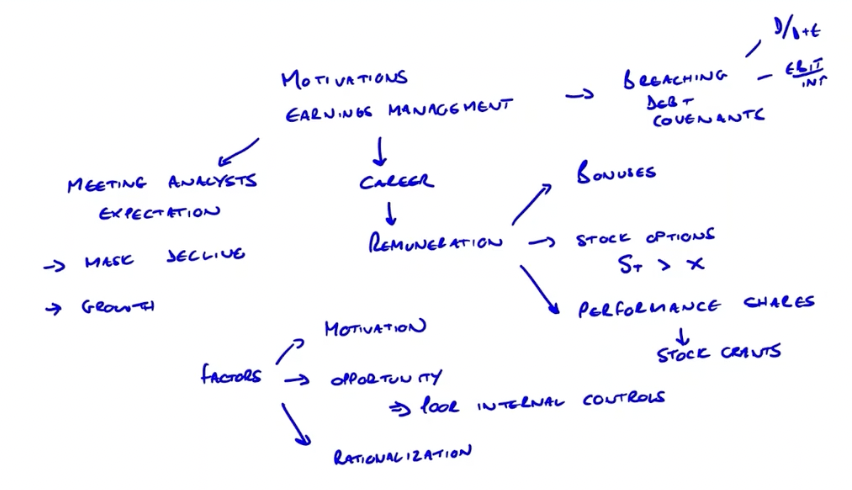 MOTIVATIONS
EARNINGS MANAGEMENT
→ BREACHING
DEBT
COVENANTS
D/D+E
EBIT/INT
MEETING ANALYSTS
EXPECTATION
→ MASK DECLINE
→ GROWTH
CAREER
REMUNERATION
BONUSES
→ STOCK OPTIONS
ST > X
PERFORMANCE SHARES
STOCK GRANTS
FACTORS
MOTIVATION
→ OPPORTUNITY
⇒ POOR INTERNAL CONTROLS
RATIONALIZATION